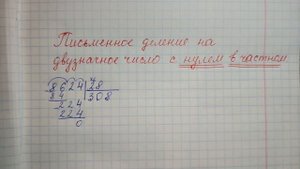 Письменное деление на
двузначное число с нулем в частном
8624 28
84 308
224
224
0